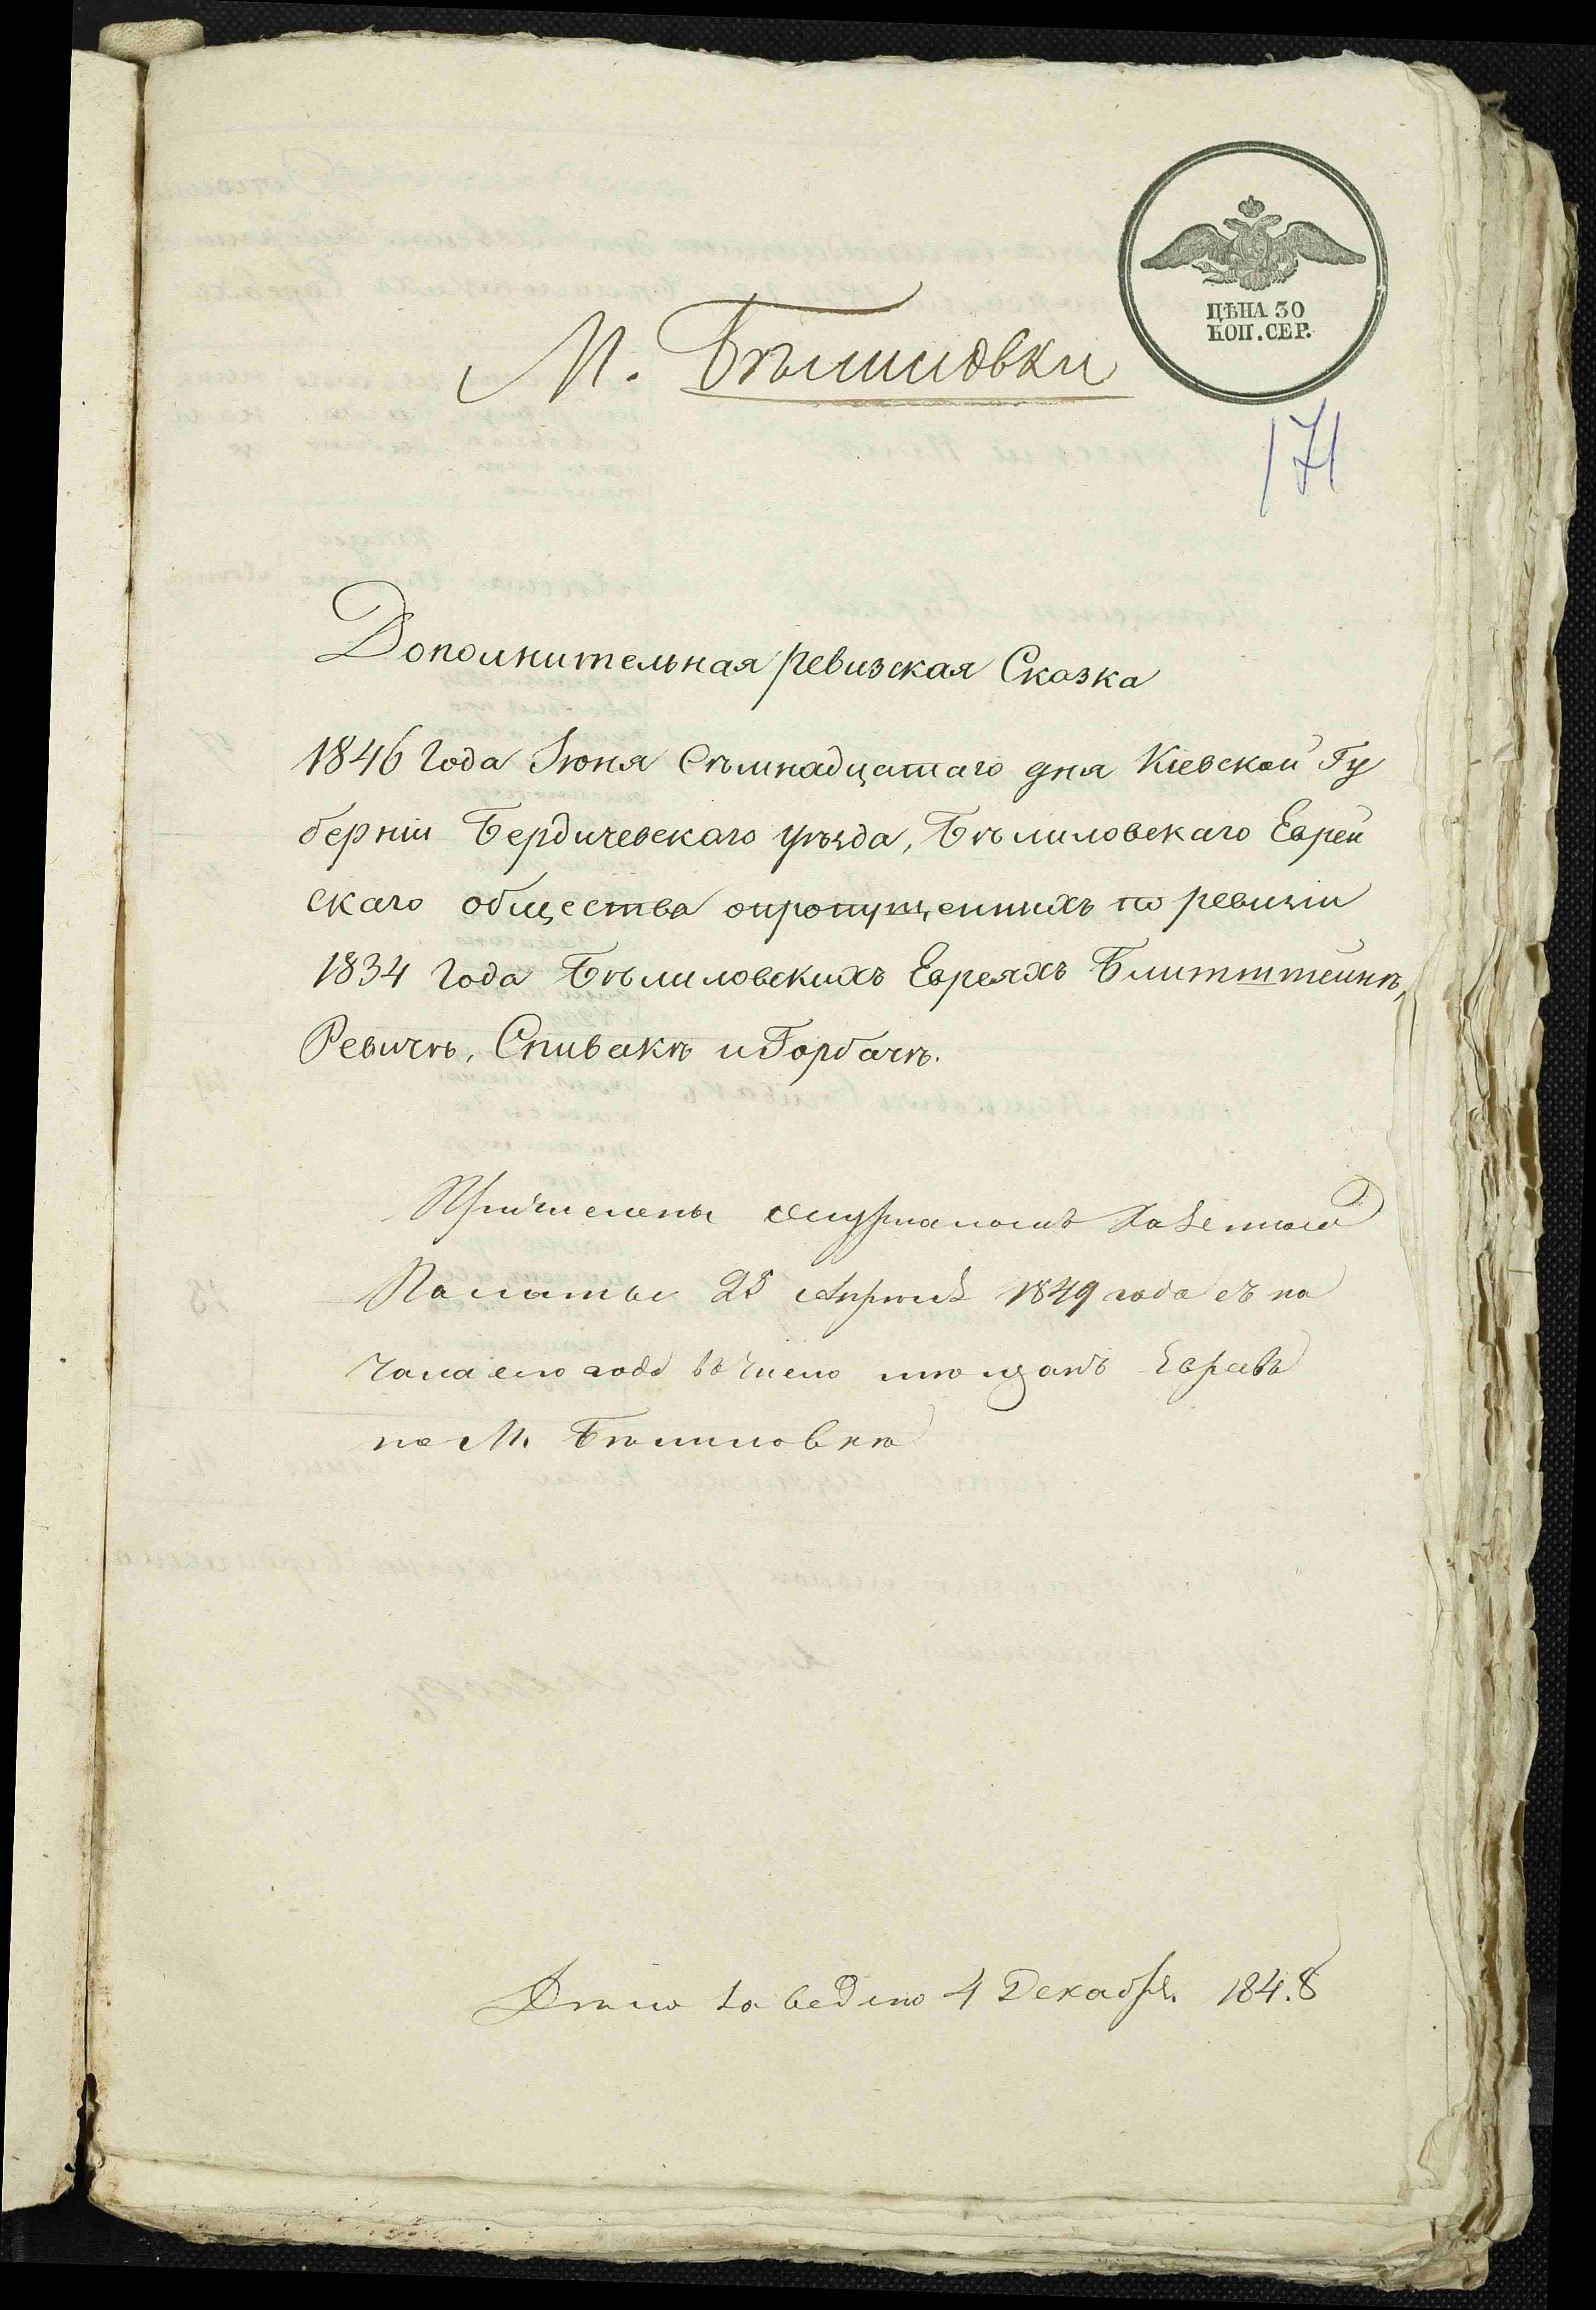 ЦѢНА 30
КОП. СЕР.
М. Бѣлиловки
171
Дополнительная ревизская Сказка
1846 Года Іюня Сѣмнадцатаго дня Кіевской Гу
берніи Бердичевскаго уѣзда, Бѣлиловскаго Еврей
скаго общества опропущенныхъ по ревизіи
1834 Года Бѣлиловскихъ Евреяхъ Блитштейнѣ,
Ревичѣ, Спивакѣ и Горбачѣ.
Причислены Журналомъ Казенной
Палаты 25 Апрѣля 1849 года съ на
чала его года въ число мѣщанъ Евреевъ
по М. Бѣлиловкѣ
Дѣло заведено 4 Декабря 1848